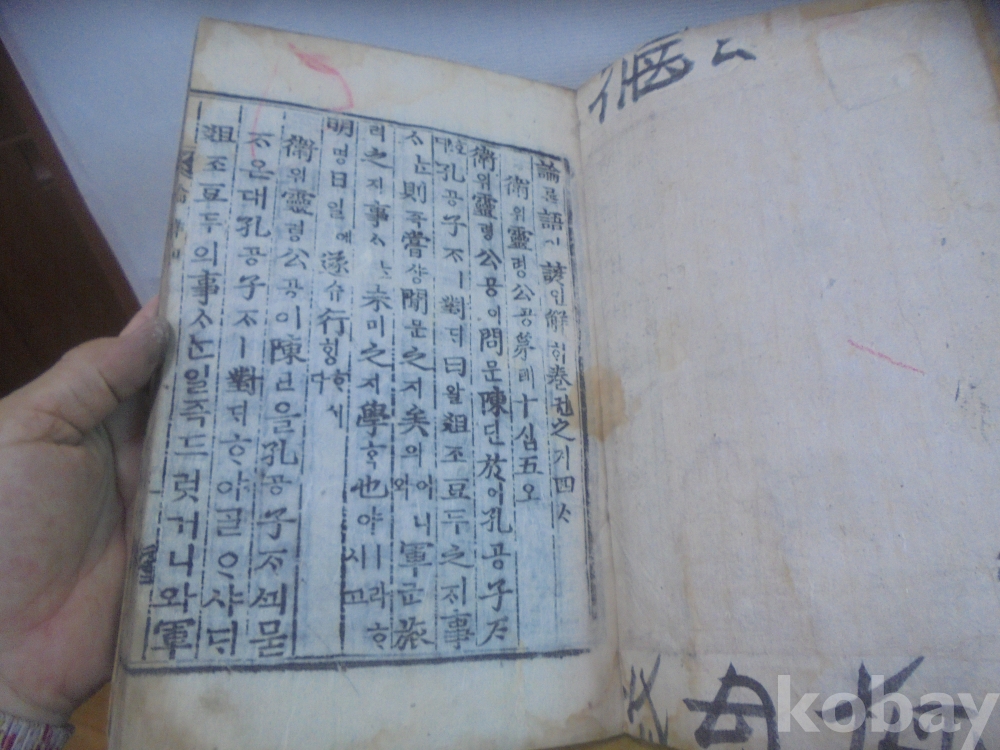 論론語어諺언解ᄒᆡ卷권之지四ᄉᆞ
衛위靈령公공第뎨十십五오
衛위靈령公공이問문陳딘於어孔공子ᄌᆞ
ᄒᆞᆫ대孔공子ᄌᆞㅣ對ᄃᆡ曰왈俎조豆두之지事
ᄉᆞᄂᆞᆫ則즉嘗샹聞문之지矣의어니와軍군旅
려之지事ᄉᆞᄂᆞᆫ未미之지學ᄒᆞᆨ也야ㅣ라ᄒᆞ시고
明명日일에遂슈行ᄒᆡᆼᄒᆞ시다
衛위靈령公공이陳딘을孔공子ᄌᆞᄭᅴ묻
ᄌᆞ온대孔공子ᄌᆞㅣ對ᄃᆡᄒᆞ야ᄀᆞᆯᄋᆞ샤ᄃᆡ
俎조豆두의事ᄉᆞᄂᆞᆫ일즉드럿거니와軍
kobay